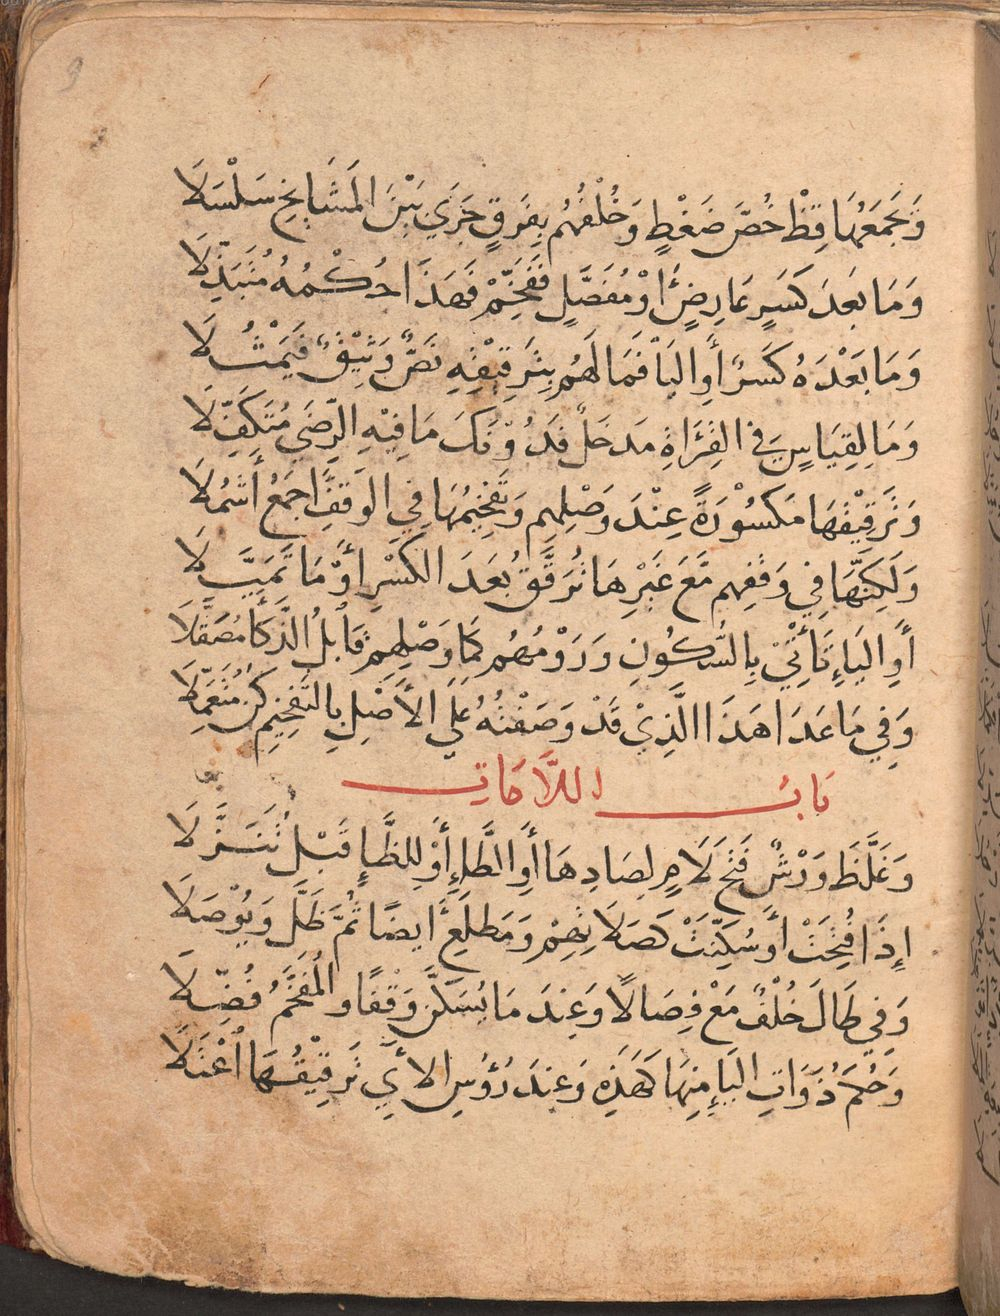 9
وَيَجمَعُهَا قِظْ خُصَّ ضَغْطٍ وَخُلْفُهُم بِفِرَقٍ جَرَي بَيْنَ المَشَايِخِ سَلْسَلَا
وَمَا بَعدَ كَسَرٍ عَارِضٍ أَوْ مُفَصَّلٍ فَفَخِّمْ فَهَذَا حُكْمُهُ مُتَبَذِّلَا
وَمَا بَعْدَهُ كَسَرٌ أَوِ اليَا فَمَا لَهُم بِتَرقِيْقِهِ نَصٌّ وَثِيْقٌ فَيَمْثُلَا
وَمَا لِقِيَاسٍ فِي القِرَاةِ مَدخَلٌ فَدُوْنَكَ مَا فِيْهِ الرِّضَي مُتَكَفِّلَا
وَتَرقِيْقُهَا مَكسُوْرَةً عِنْدَ وَصْلِهِم وَتَفخِيْمُهَا فِي الوَقفِ اجمَعُ أَشمُلَا
وَلَكِنَّهَا فِي وَقفِهِم مَعَ غَيْرِهَا تُرَقَّقُ بَعدَ الكَسْرِ أَوْ مَا تَمَيَّلَا
أَوِ اليَاءِ تَأتْيْ بِالسُّكُونِ وَرَوْمُهُم كَمَا وَصْلِهِم فَابلُ الذَّكَا مُصَقَّلَا
وَفِي مَا عَدَا هَذَا الَّذِيْ قَدْ وَصَفْتُهُ عَلي الأَصْلِ بِالتَّفخِيْمِ كُنْ مُتَعَمِّلَا
بَابُ اللَّامَاتِ
وَغَلَّظَ وَرْشٌ فَتْحَ لَامٍ لِصَادِهَا أَوِ الطَّاءِ أَوْ لِلظَّاءِ قَبْلُ تَنَزَّلَا
إِذَا فُتِحَتْ أَو سُكِّنَتْ كَصَلَاتِهِمْ وَمَطلَعِ أَيضًا ثُمَّ ظَلَّ وَيُوْصَلَا
وَفِي طَالَ خُلْفٌ مَعْ فِصَالًا وَعِندَ مَا يُسَكَّنُ وَقْفًا وَالمُفَخَّمُ فُضِّلَا
وَحُكمُ ذَوَاتِ اليَاءِ مِنهَا كَهَذِهِ وَعِندَ رُؤُسِ الأَيِ تَرقِيْقُهَا اعْتَلَا